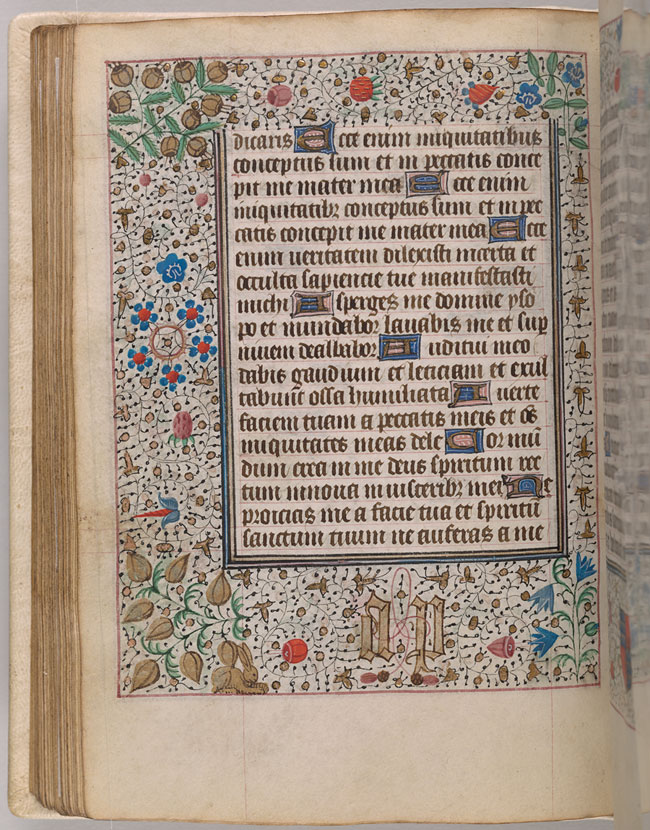 dicaris Ecce enim iniquitatibus
conceptus sum et in peccatis conce
pit me mater mea Ecce enim
iniquitatibꝫ conceptus sum et in pec
catis concepit me mater mea Ecce
enim ueritatem dilexisti incerta et
occulta sapiencie tue manifestasti
michi Asperges me domine yso
po et mundabor lauabis me et sup
niuem dealbabor Auditui meo
dabis gaudium et leticiam et exul
tabunt ossa humiliata Auerte
faciem tuam a peccatis meis et oēs
iniquitates meas dele Cor mū
dum crea in me deus spiritum rec
tum innoua in uisceribꝫ meis Ne
proicias me a facie tua et spiritū
sanctum tuum ne auferas a me
a p